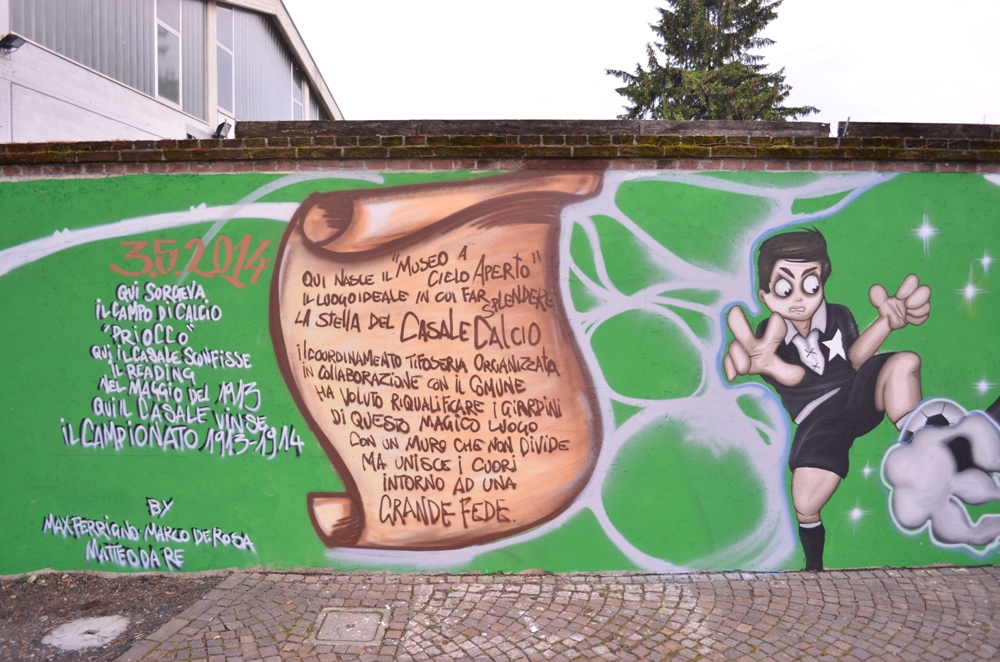 3.5.2014
QUI SORGEVA
IL CAMPO DI CALCIO
"PRIOCCO"
QUI IL CASALE SCONFISSE
IL READING
NEL MAGGIO DEL 1913
QUI IL CASALE VINSE
IL CAMPIONATO 1913-1914
BY
MAX FERRIGNO MARCO DE ROSA
MATTEO DA RE
QUI NASCE IL "MUSEO A
CIELO APERTO"
IL LUOGO IDEALE IN CUI FAR SPLENDERE
LA STELLA DEL CASALE CALCIO
IL COORDINAMENTO TIFOSERIA ORGANIZZATA
IN COLLABORAZIONE CON IL COMUNE
HA VOLUTO RIQUALIFICARE I GIARDINI
DI QUESTO MAGICO LUOGO
CON UN MURO CHE NON DIVIDE
MA UNISCE I CUORI
INTORNO AD UNA
GRANDE FEDE.